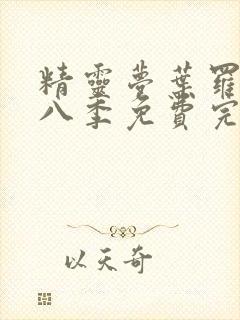 精靈夢葉羅
八季免費完
以天奇